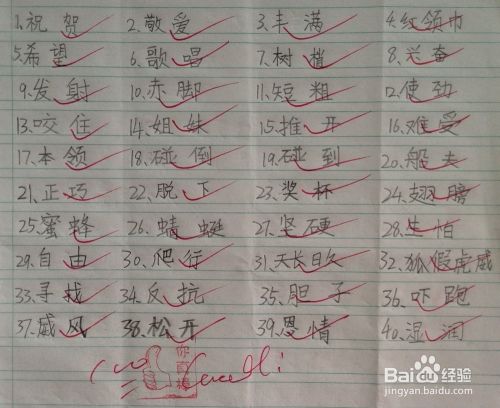 1.祝贺 2.敬爱 3.丰满 4.红领巾
5.希望 6.歌唱 7.树梢 8.兴奋
9.发射 10.赤脚 11.短粗 12.使劲
13.咬住 14.姐妹 15.推开 16.难受
17.本领 18.碰倒 19.碰到 20.船夫
21.正巧 22.脱下 23.奖杯 24.翅膀
25.蜜蜂 26.蜻蜓 27.坚硬 28.生怕
29.自由 30.爬行 31.天长日久 32.狐假虎威
33.寻找 34.反抗 35.胆子 36.吓跑
37.威风 38.松开 39.恩情 40.湿润
你真棒
Baidu经验
jingyan.baidu.com